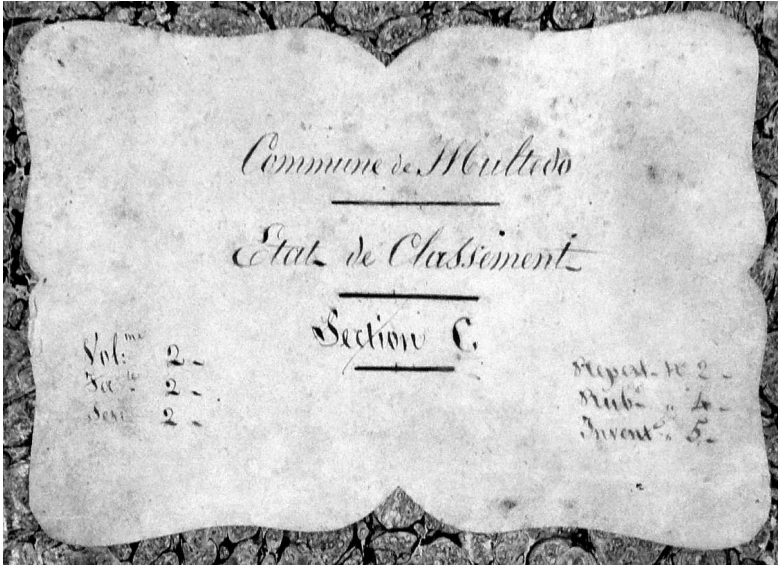 Commune de Multedo
Etat de Classement
Section C.
Vol.me 2
2
2
Repert. N° 2
Rub.a " 4
Invent.o " 5